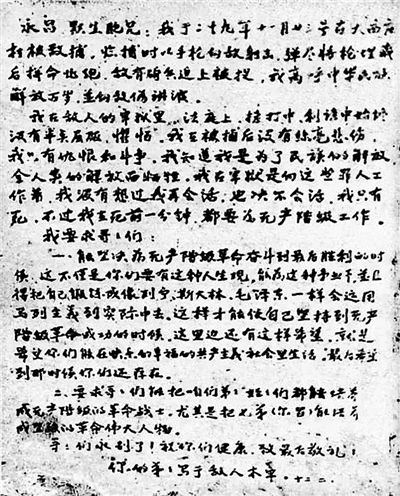 永昌 默生胞兄：我于二十九年十一月廿三号在大西庄
村被敌捕，临捕时以手枪向敌射击，弹尽将枪埋藏
后拼命
我高呼中华民族
解放万岁，并向敌伪讲演。
我在敌人的牢狱里，法庭上，拷打中，利诱中始终
没有半点屈服，惧怕。我在被捕后没有丝毫悲伤，
我只有仇恨和斗争。我知道我是为了民族的解放
全人类的解放而牺牲。我在牢狱是向这些罪人工
作着，我没有想过我再会活，也决不会活，我只有
死，不过我在死前一分钟，都要为无产阶级工作。
我要求哥哥们：
一、能坚决为无产阶级革命奋斗到最后胜利的时
候，这不仅是你们要有这种人生观，能为这种事业干，并且
得把自己锻炼成像列宁，斯大林，毛泽东，一样会运用
马列主义到实际中去。这样才能使自己坚持到无产
阶级革命成功的时候。这里边还有这样希望，就是
希望你们能在快乐的幸福的共产主义社会里生活。最后希望
到那时候你们还存在。
二、要求哥哥们能把咱们弟弟、侄侄们都能培养
成无产阶级的革命战士，尤其是把
能培养
成
革命伟大人物。
哥哥们永别了！祝你们健康，致最后敬礼！
你的弟弟写于敌人木草。十二、二